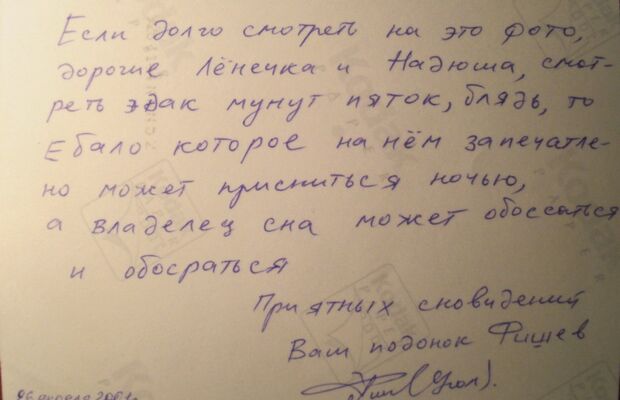 Если долго смотреть на это фото,
дорогие Лёнечка и Надюша, смот-
реть эдак мунут пяток, блядь, то
ебало которое на нём запечатле-
но может присниться ночью,
а владелец сна может обоссаться
и обосраться
Приятных сновидений
Ваш подонок Фишев